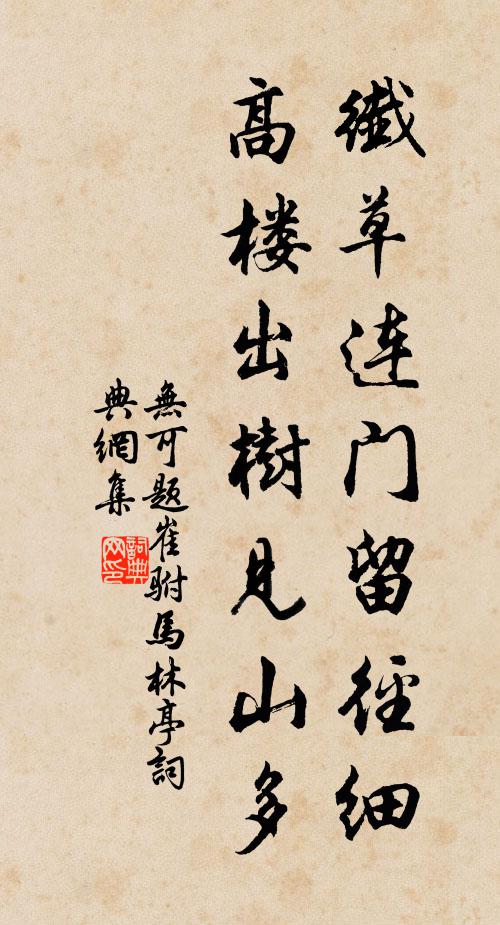 纖草连门留径细
高楼出樹見山多
無可题崔駙馬林亭詞
典網集
詞典
网印